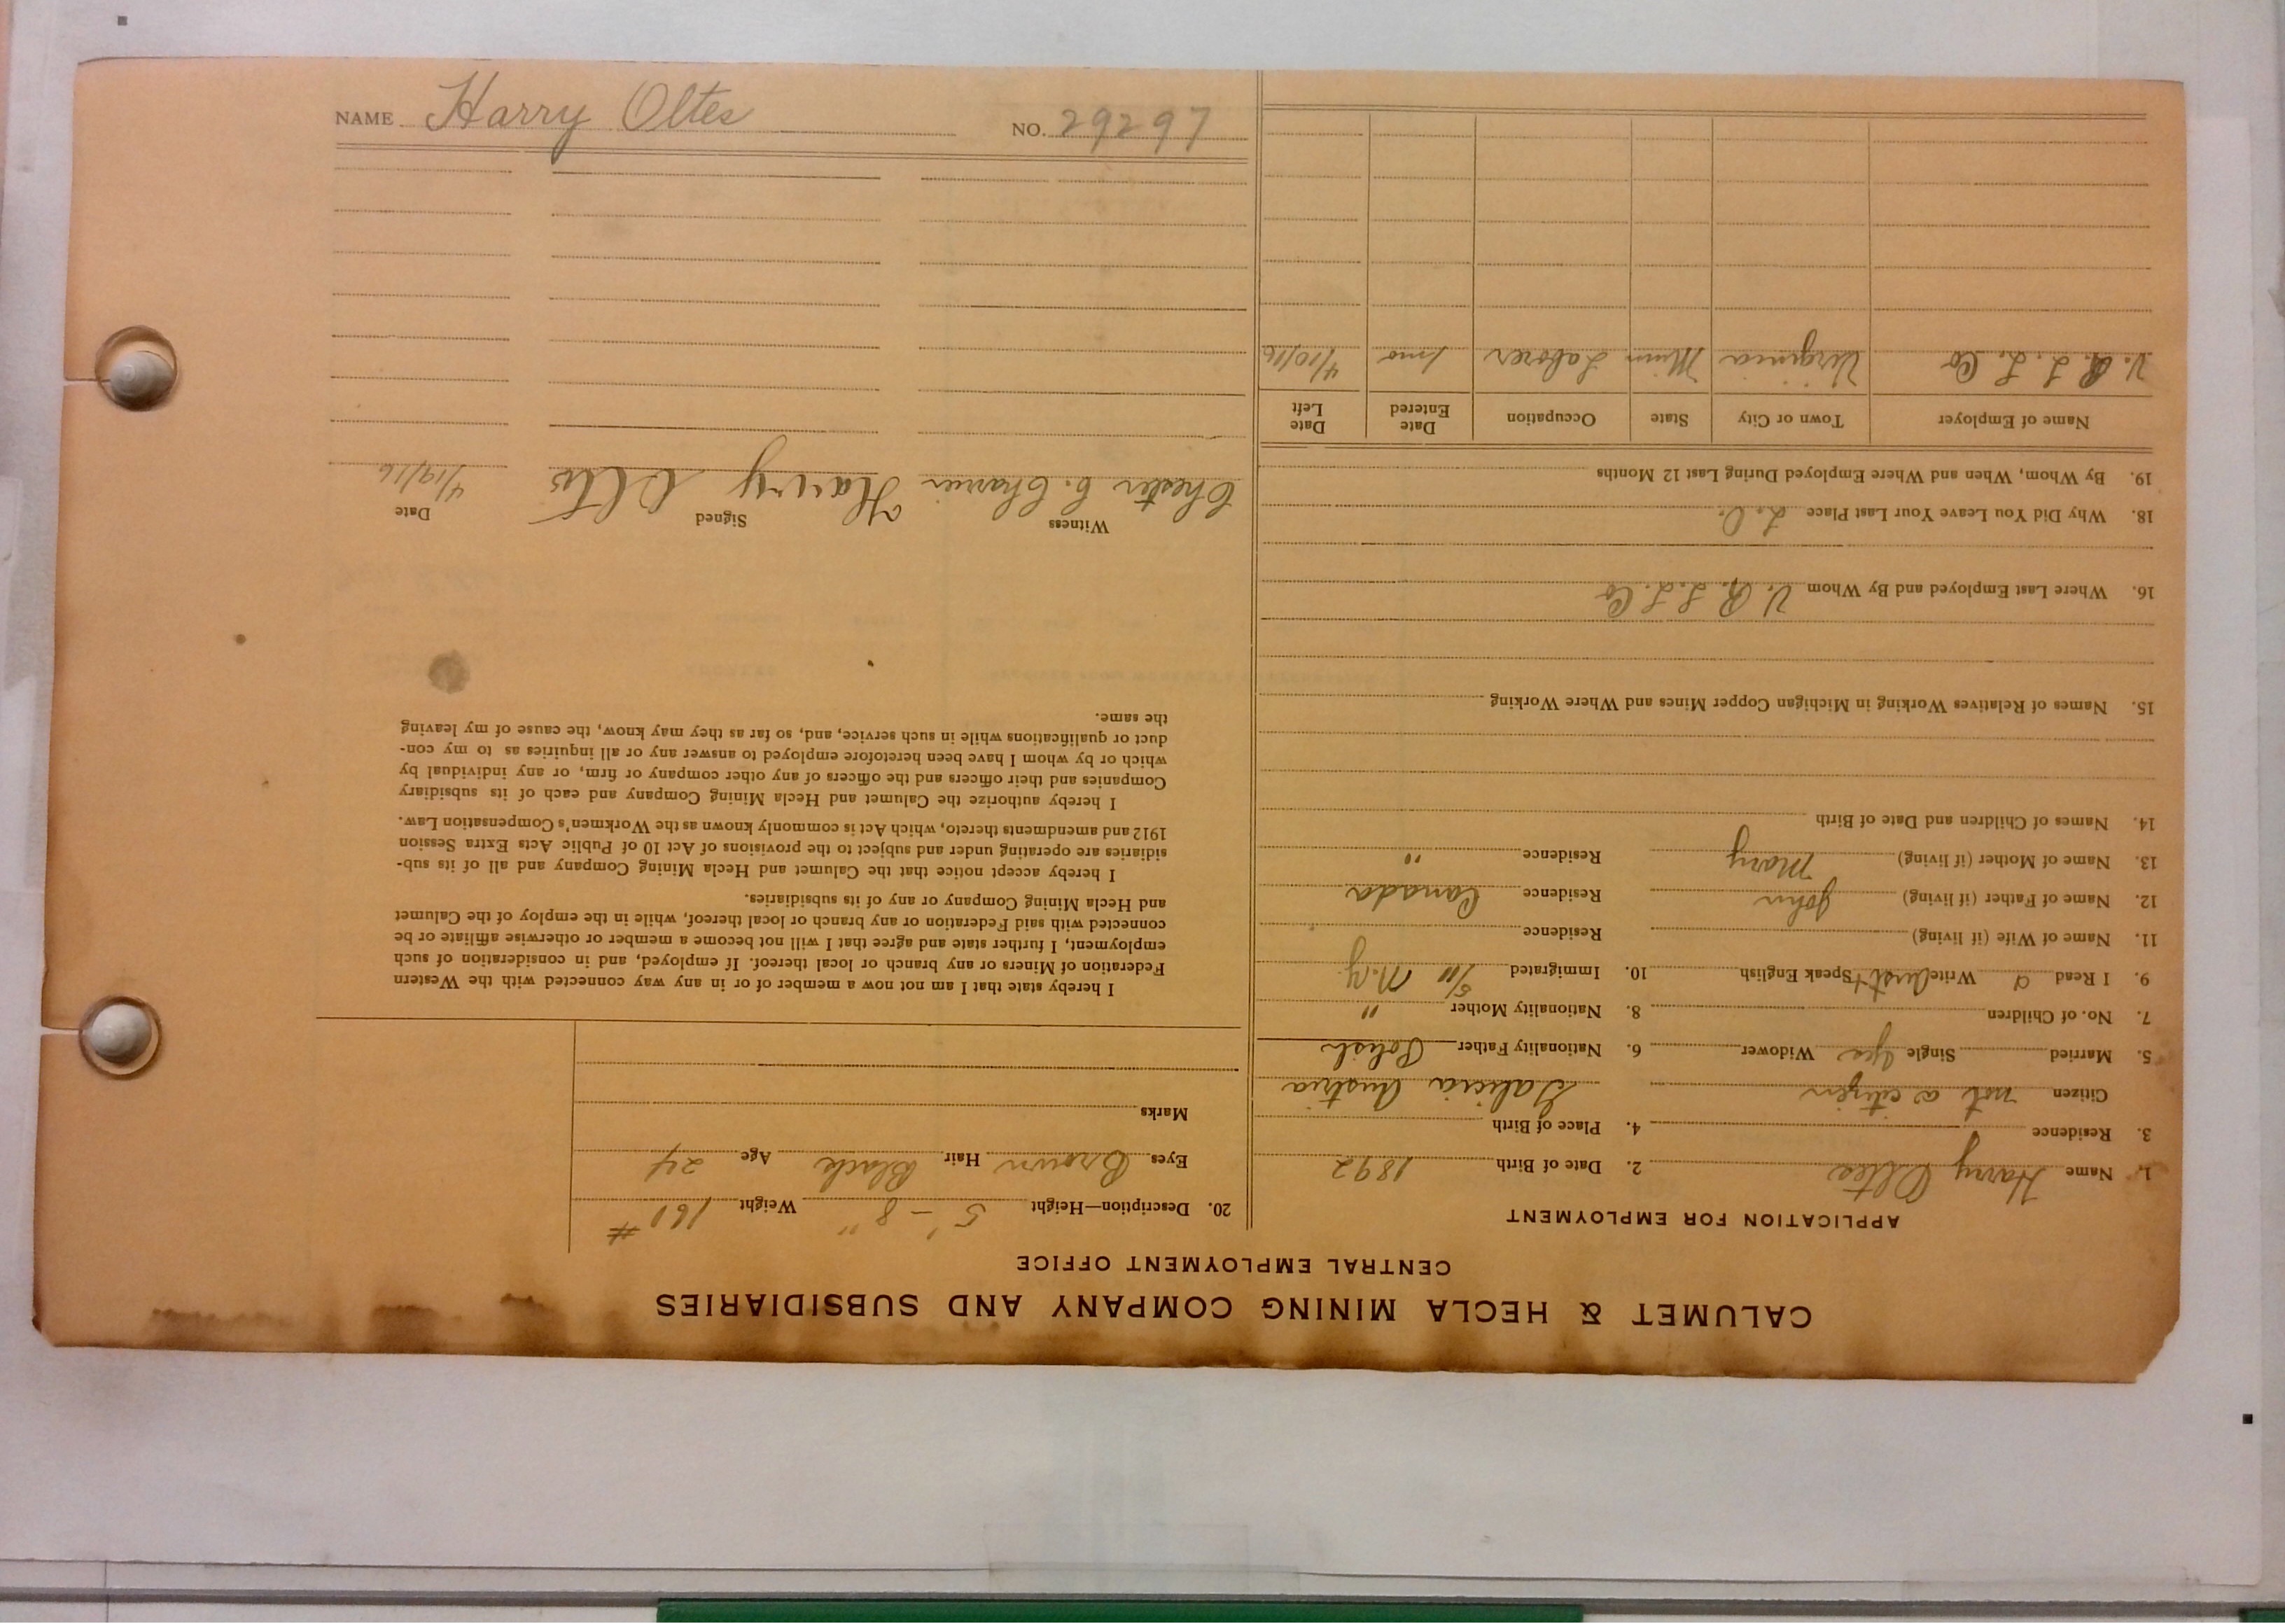 NAME Harry Oltes NO. 29297
CALUMET & HECLA MINING COMPANY AND SUBSIDIARIES
CENTRAL EMPLOYMENT OFFICE
APPLICATION FOR EMPLOYMENT
1. Name Harry Oltes 2. Date of Birth 1892
3. Residence 4. Place of Birth
Citizen not a citizen Galicia Austria
5. Married Single Yes Widower 6. Nationality Father Polish
7. No. of Children 8. Nationality Mother "
9. I Read Write Speak English 10. Immigrated 5/11 N.Y.
11. Name of Wife (if living) Residence
12. Name of Father (if living) John Residence Canada
13. Name of Mother (if living) Mary Residence "
14. Names of Children and Date of Birth
15. Names of Relatives Working in Michigan Copper Mines and Where Working
16. Where Last Employed and By Whom V. R. L. L. Co
18. Why Did You Leave Your Last Place L. O.
19. By Whom, When and Where Employed During Last 12 Months
Name of Employer Town or City State Occupation Date Entered Date Left
V. R. L. L. Co Virginia Minn Laborer 1 mo 4/10/16
20. Description—Height 5' - 8" Weight 160 #
Eyes Brown Hair Black Age 24
Marks
I hereby state that I am not now a member of or in any way connected with the Western
Federation of Miners or any branch or local thereof. If employed, and in consideration of such
employment, I further state and agree that I will not become a member or otherwise affiliate or be
connected with said Federation or any branch or local thereof, while in the employ of the Calumet
and Hecla Mining Company or any of its subsidiaries.
I hereby accept notice that the Calumet and Hecla Mining Company and all of its sub-
sidiaries are operating under and subject to the provisions of Act 10 of Public Acts Extra Session
1912 and amendments thereto, which Act is commonly known as the Workmen's Compensation Law.
I hereby authorize the Calumet and Hecla Mining Company and each of its subsidiary
Companies and their officers and the officers of any other company or firm, or any individual by
which or by whom I have been heretofore employed to answer any or all inquiries as to my con-
duct or qualifications while in such service, and, so far as they may know, the cause of my leaving
the same.
Witness Signed Date
Chester C. Harry Oltes 4/19/16